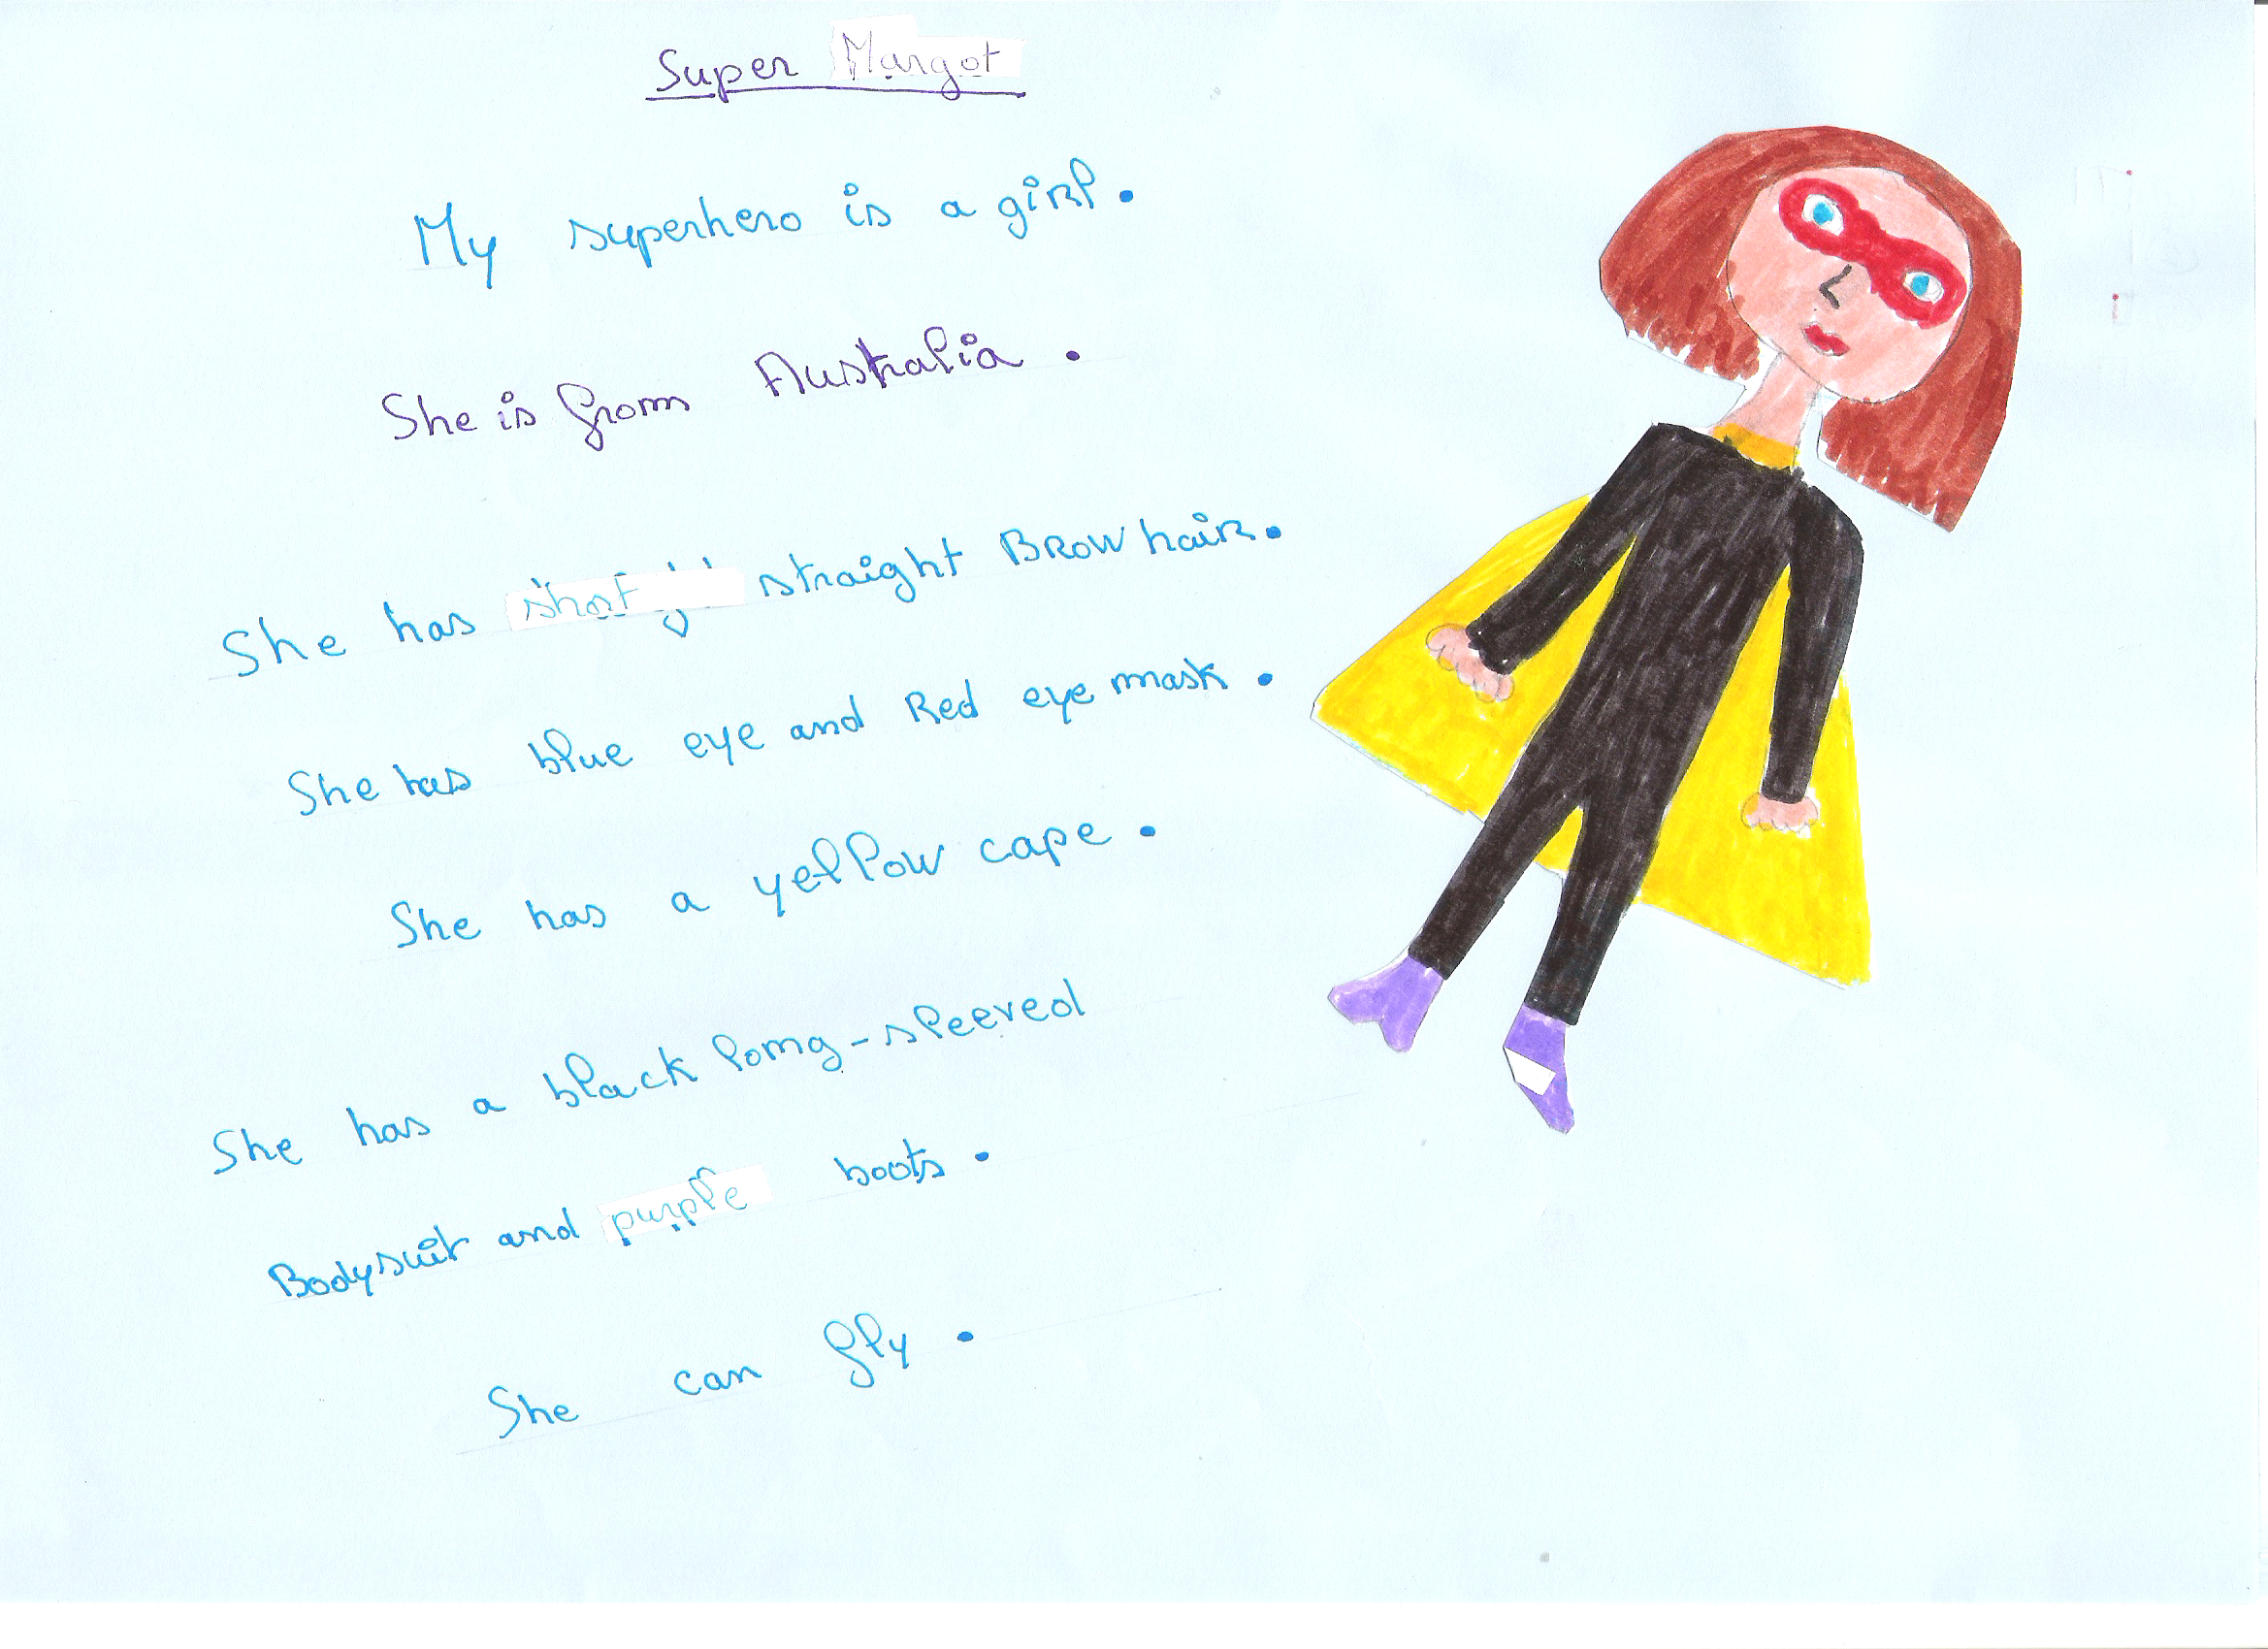 Super Margot
My superhero is a girl.
She is from Australia.
She has short straight Brow hair.
She has blue eye and Red eye mask.
She has a yellow cape.
She has a black long-sleeved
Bodysuit and purple boots.
She can fly.